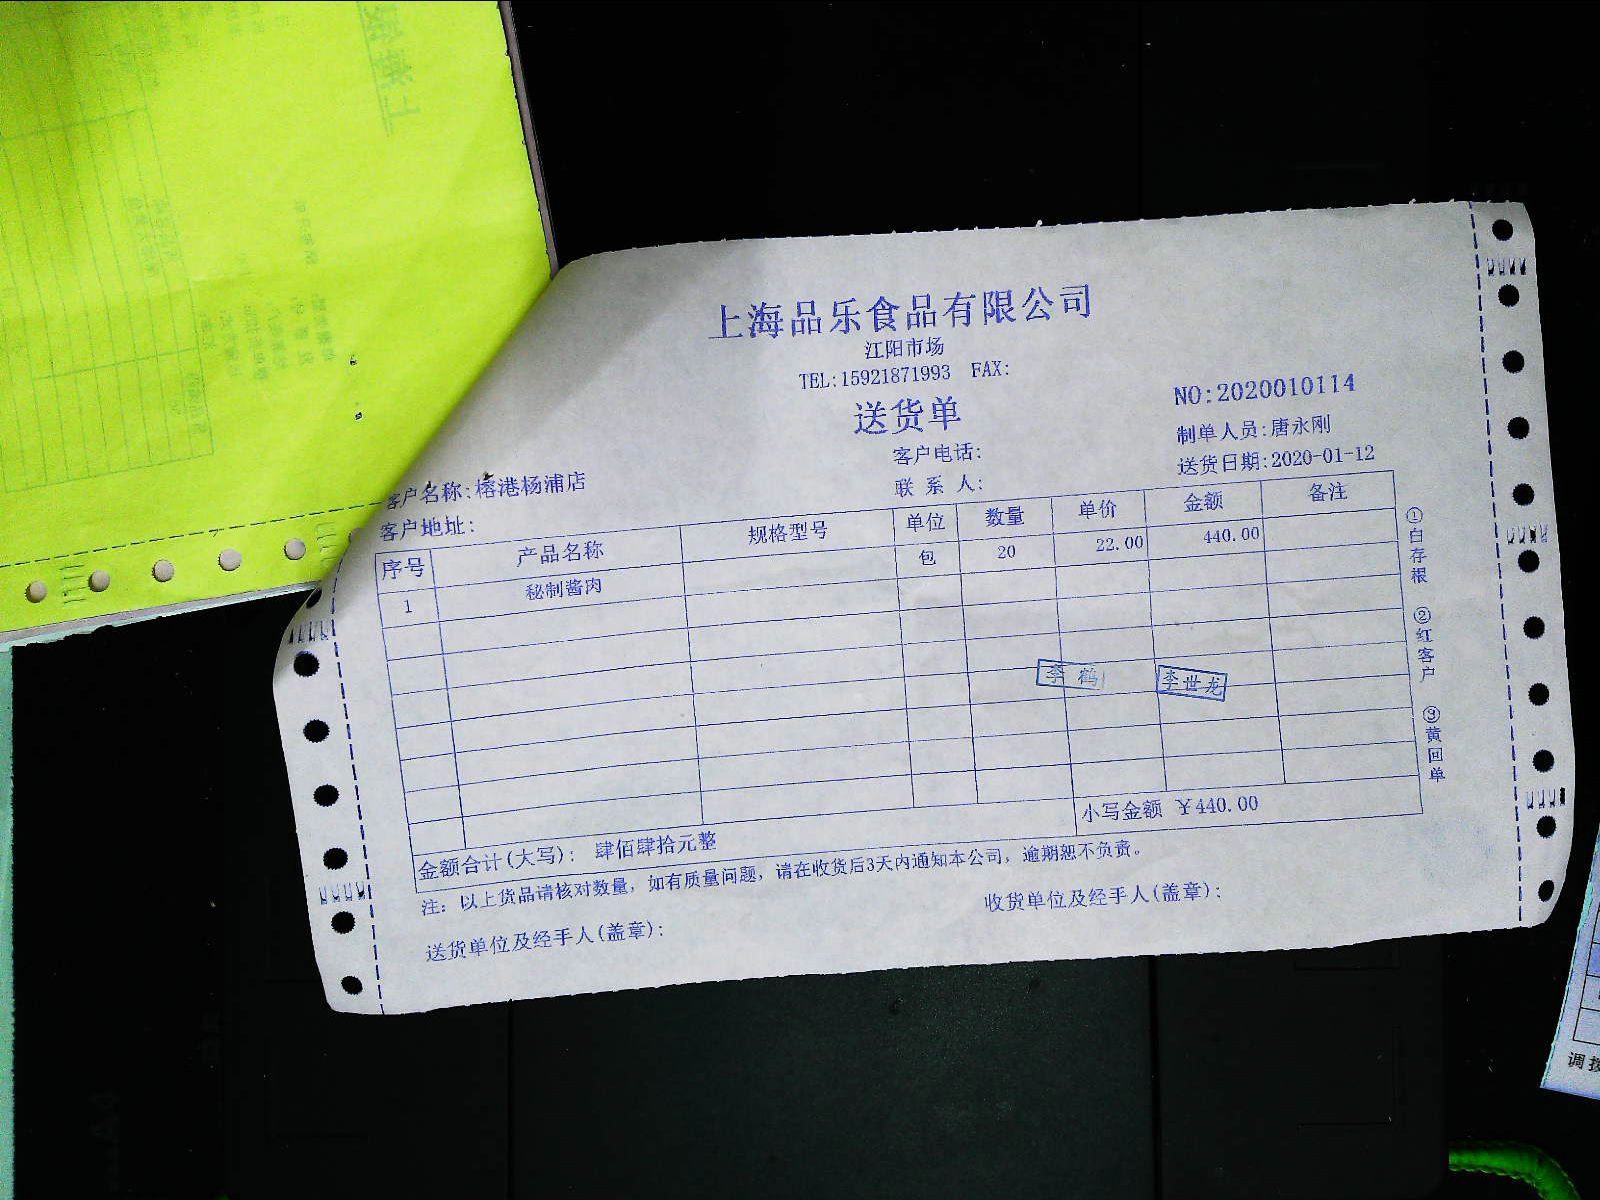 上海品乐食品有限公司
江阳市场
TEL:15921871993 FAX:
送货单
NO:2020010114
客户电话:
制单人员:唐永刚
客户名称:榕港杨浦店
联 系 人:
送货日期:2020-01-12
客户地址:
序号 产品名称 规格型号 单位 数量 单价 金额 备注
1 秘制酱肉 包 20 22.00 440.00
李鹤 李世龙
金额合计(大写): 肆佰肆拾元整 小写金额 ￥440.00
注: 以上货品请核对数量, 如有质量问题, 请在收货后3天内通知本公司, 逾期恕不负责。
送货单位及经手人(盖章): 收货单位及经手人(盖章):
①白存根 ②红客户 ③黄回单